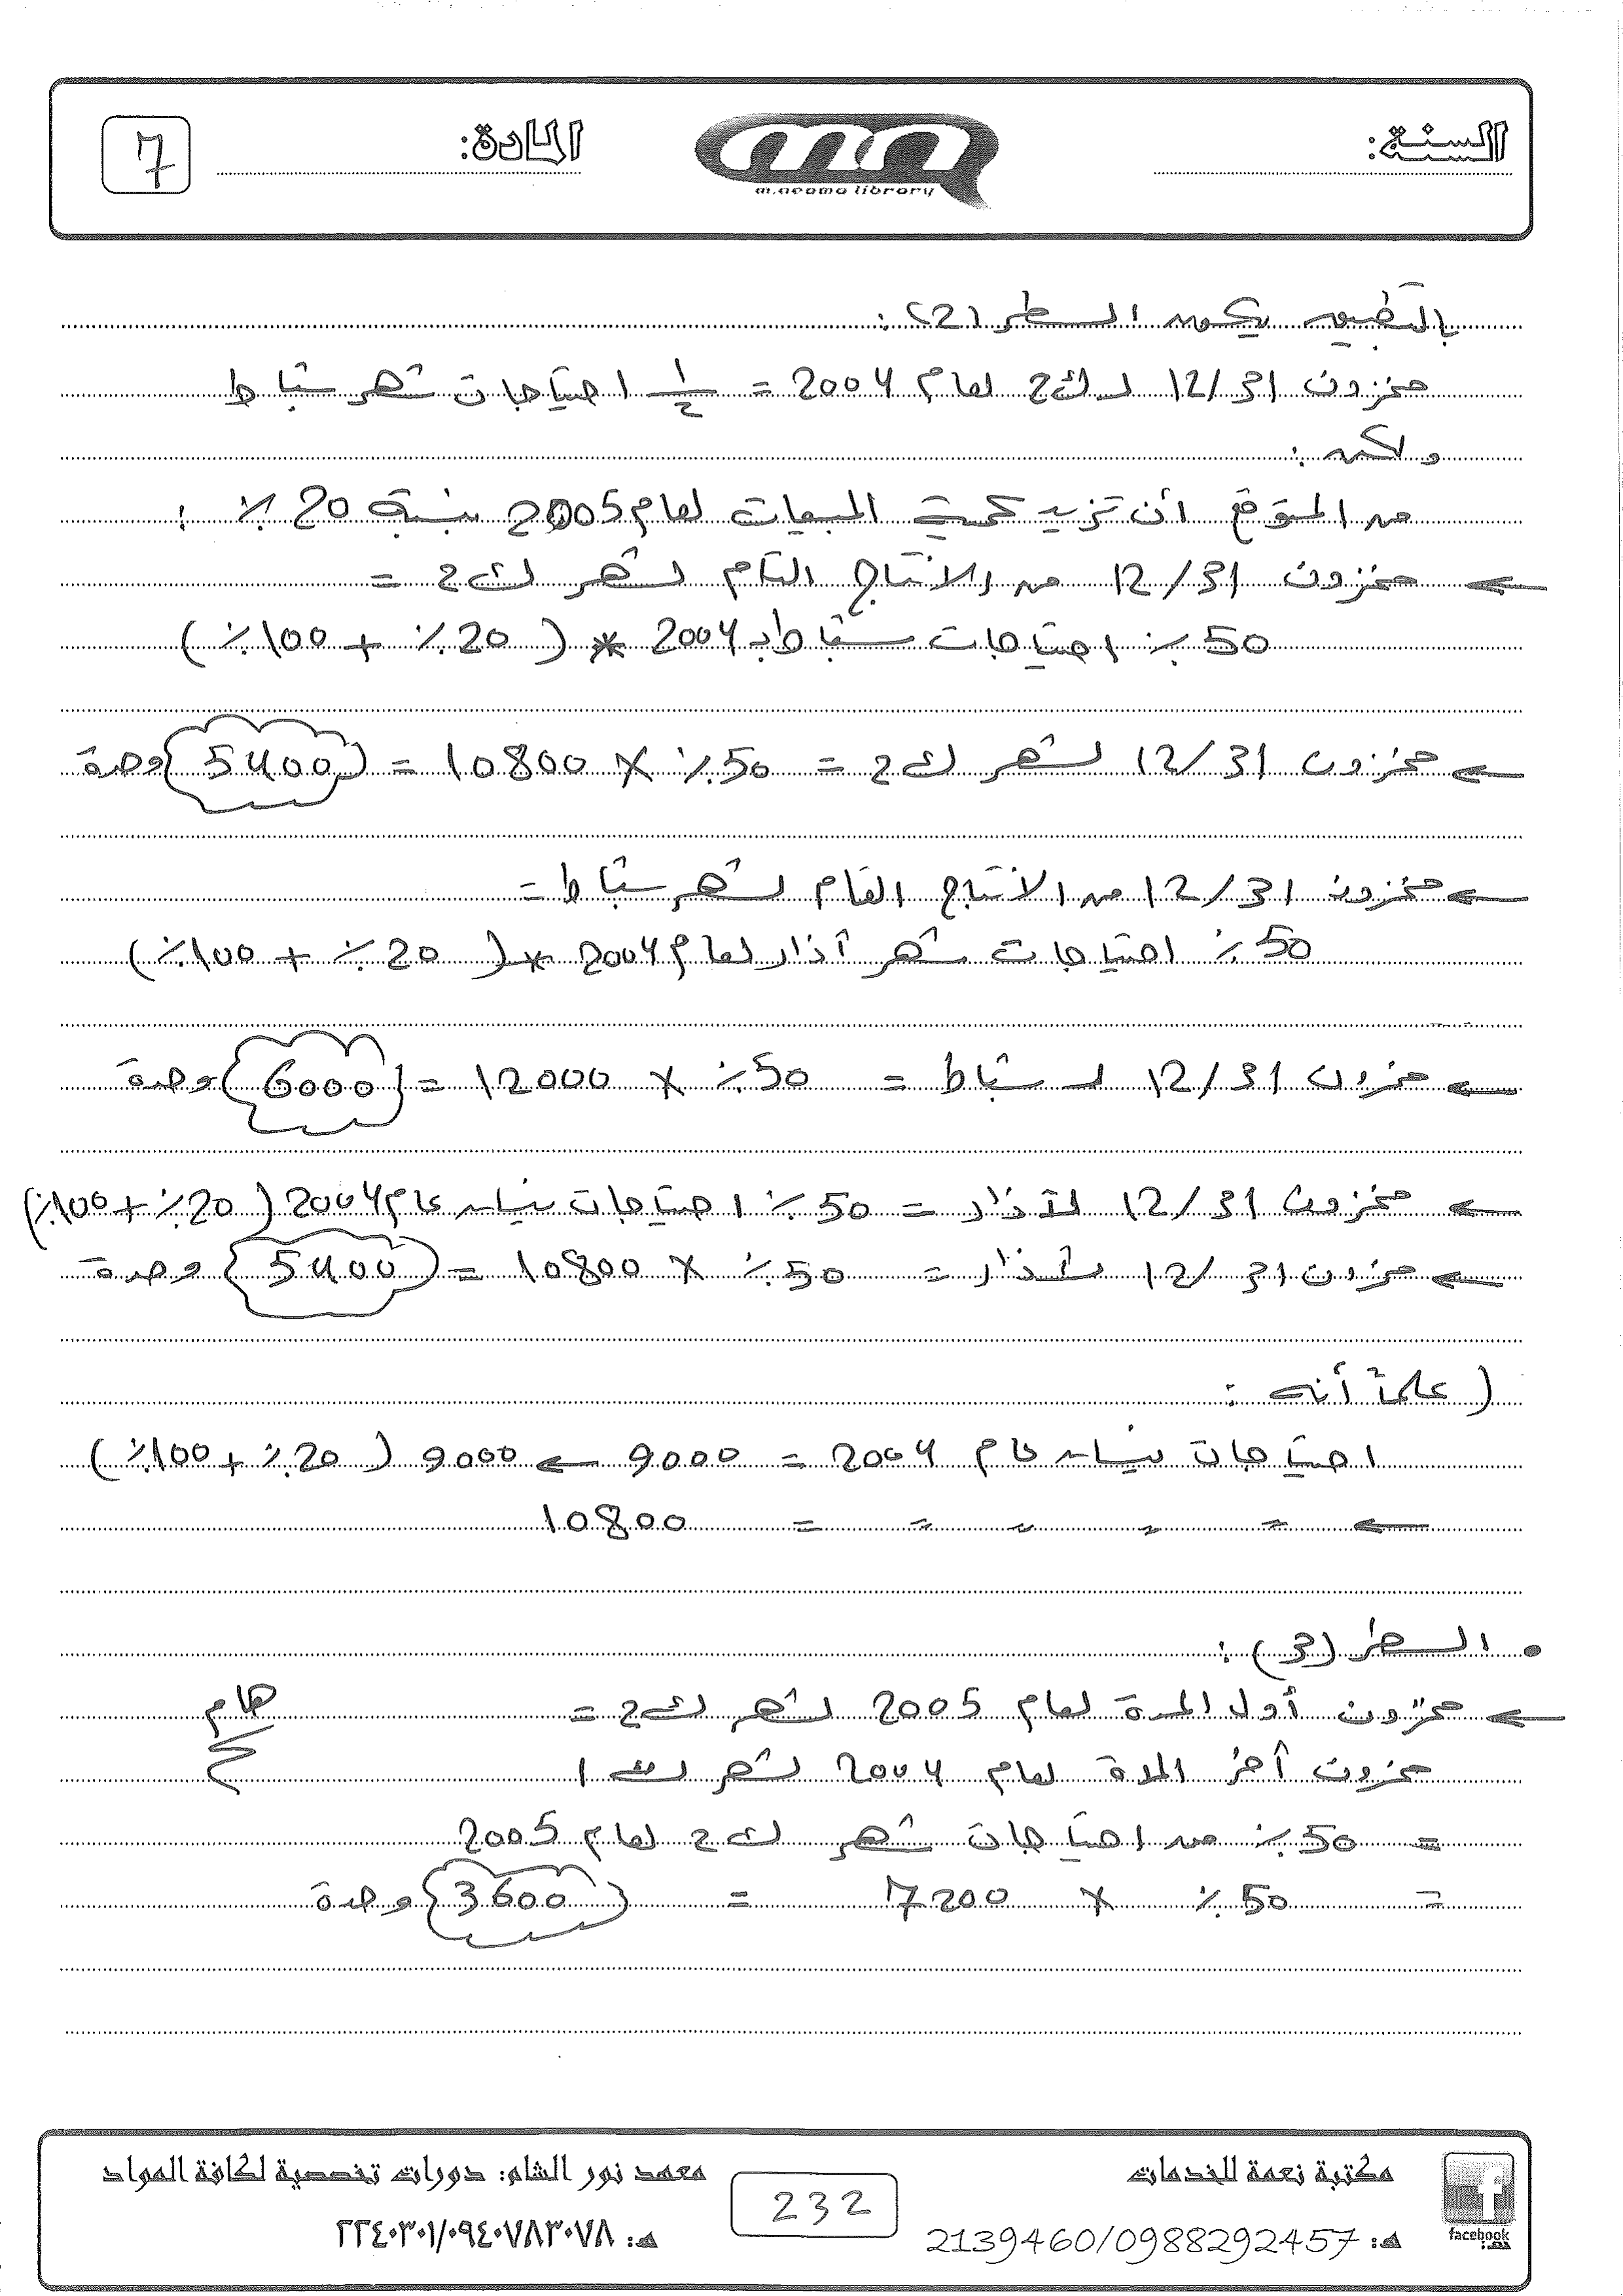 السنة:
m.neoma library
المادة:
7
بالتطبيق يكون السطر (2):
مخزون 12/31 لـ ك2 لعام 2004 = 1/2 احتياجات شهر شباط
ولكن:
من المتوقع أن تزيد كمية المبيعات لعام 2005 بنسبة 20 % :
← مخزون 12/31 من الانتاج التام لشهر ك2 =
50 % احتياجات شباط 2004 * (20 % + 100 %)
← مخزون 12/31 لشهر ك2 = 50 % × 10800 = {5400} وحدة
← مخزون 12/31 من الانتاج التام لشهر شباط =
50 % احتياجات شهر آذار لعام 2004 * (20 % + 100 %)
← مخزون 12/31 لـ شباط = 50 % × 12000 = {6000} وحدة
← مخزون 12/31 لآذار = 50 % احتياجات نيسان عام 2004 (20 % + 100 %)
← مخزون 12/31 لآذار = 50 % × 10800 = {5400} وحدة
(علماً أنه :
احتياجات نيسان عام 2004 = 9000 ← 9000 (20 % + 100 %)
← = = = = = 10800
• السطر (3) :
← مخزون أول المدة لعام 2005 لشهر ك2 =
هام
مخزون آخر المدة لعام 2004 لشهر ك1
= 50 % من احتياجات شهر ك2 لعام 2005
= 50 % × 7200 = {3600} وحدة
مكتبة نعمة للخدمات
هـ: 2139460/0988292457
facebook
232
معهد نور الشام: دورات تخصصية لكافة المواد
هـ: ٢٢٤٠٣٠١/٠٩٤٠٧٨٣٠٧٨